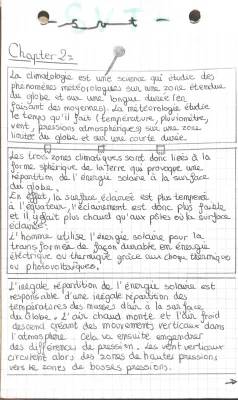 Chapter 2:
La climatologie est une science qui étudie des
phénomènes météorologiques sur une zone étendue
du globe et sur une longue durée (en
faisant des moyennes). La météorologie étudie
le temps qu'il fait (température, pluviométrie,
vent, pressions atmosphériques) sur une zone
limitée du globe et sur une courte durée.
Les trois zones climatiques sont donc liées à la
forme sphérique de la terre qui provoque une
répartition de l'énergie solaire à la surface
du globe.
En effet, la surface éclairée est plus
à l'équateur, l'éclairement est donc plus faible
et il y fait plus chaud qu'aux pôles où la surface
éclairée.
L'homme utilise l'énergie solaire pour la
transformée de façon durable en énergie
électrique ou thermique grâce aux thermique
ou photovoltaïques.
L'inégale répartition de l'énergie solaire est
responsable d'une inégale répartition des
températures des masses d'air à la surface
du Globe. L'air chaud monte et l'air froid
descend créant des mouvements verticaux dans
l'atmosphère. Cela va ensuite engendrer
des différences de pression. Les vent verticaux
circulent alors des zones de hautes pressions
vers le zones de basses pressions.